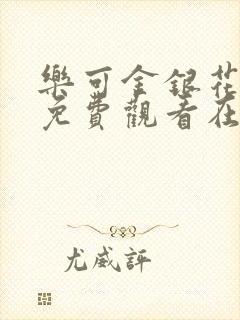 樂可金銀花
免費觀看在
尤威評